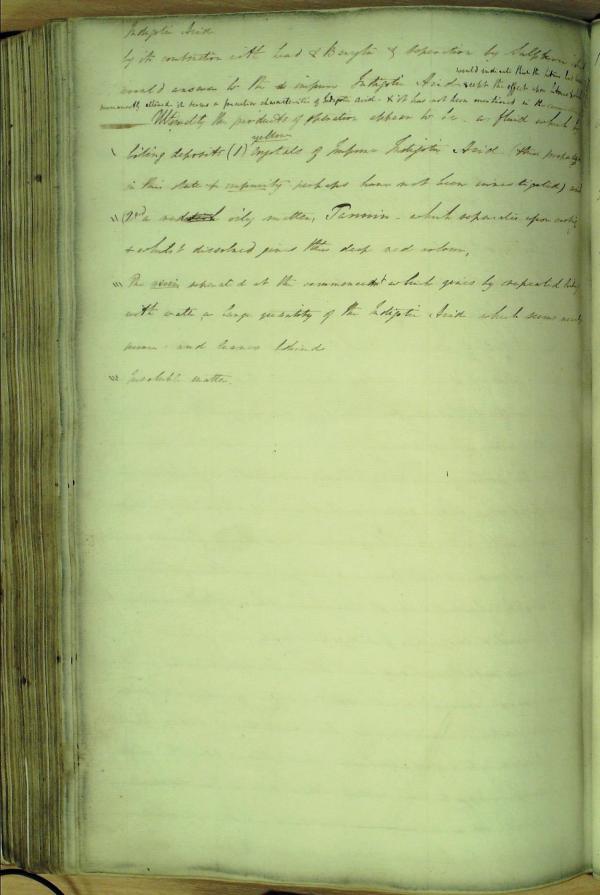 Indigotic Acid
by its combination with Lead & Baryta & separation by Sulphuric
would indicate that the
would answer to the impure Indigotic Acid except the effect upon
it seems a peculiar characteristic of Indigotic acid & it has not been mentioned in the
Ultimately the products of operation appear to be a fluid which by
yellow
boiling deposits (1) crystals of Impure Indigotic Acid (the properties
in this state of impurity perhaps have not been investigated) and
(2nd a red oily matter, Tannin - which separates upon cooling
& whilst dissolved gives the deep red colour,
The resin separated at the commencement which gives by repeated boiling
with water a large quantity of the Indigotic Acid which seems nearly
pure - and leaves behind
Insoluble matter.